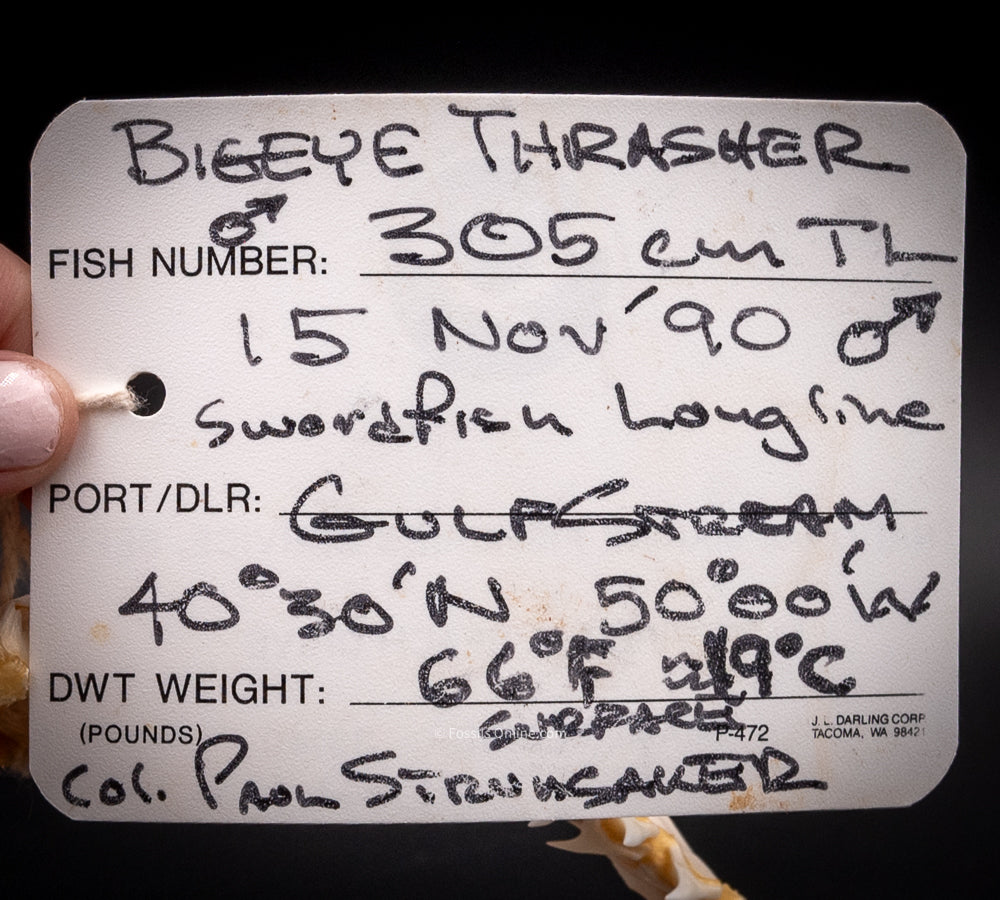 BIGEYE THRASHER
♂
FISH NUMBER: 305 cm TL
15 Nov '90 ♂
Swordfish Longline
PORT/DLR: GULF STREAM
40°30'N 50°00'W
DWT WEIGHT: 66°F ≈19°C
(POUNDS) SURFACE P-472
J. L. DARLING CORP
TACOMA, WA 98421
© Fossils Online.com
Col. PAUL